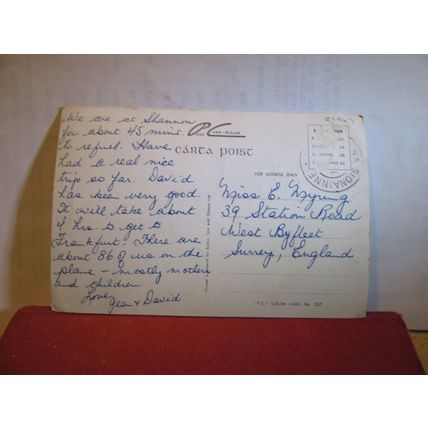 We are at Shannon
for about 45 mins.
to refuel. Have
had a real nice
trip so far. David
has been very good.
It will take about
4 hrs. to get to
Frankfurt. There are
about 86 of us on the
plane – mostly mothers
and children.
Love,
Jean & David
CÁRTA POIST
FOR ADDRESS ONLY
Miss E. Nyring
39 Station Road
West Byfleet
Surrey, England
SIONAINNE
"T.C." COLOR CARD, No. 237